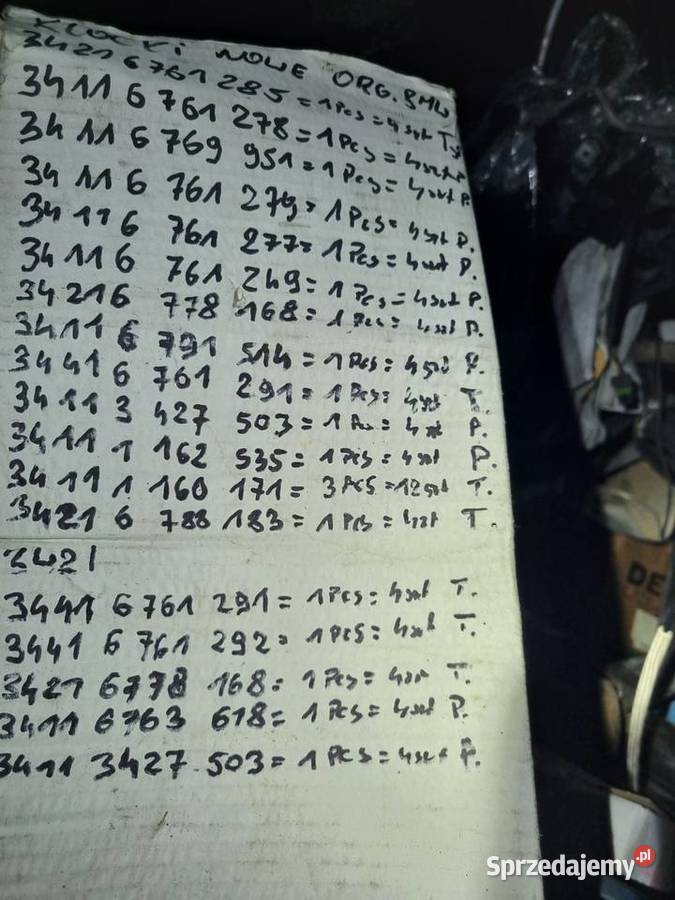 KLOCKI NOWE ORG. BMW
3421 6 761 285 = 1 Pcs = 4 szt Ty
3411 6 761 278 = 1 Pcs = 4 szt P.
3411 6 769 951 = 1 Pcs = 4 szt P.
3411 6 761 279 = 1 Pcs = 4 szt P.
3411 6 761 277 = 1 Pcs = 4 szt P.
3411 6 761 249 = 1 Pcs = 4 szt P.
3421 6 778 168 = 1 Pcs = 4 szt P.
3411 6 791 514 = 1 Pcs = 4 szt P.
3441 6 761 291 = 1 Pcs = 4 szt T.
3411 3 427 503 = 1 Pcs = 4 szt P.
3411 1 162 535 = 1 Pcs = 4 szt P.
3411 1 160 171 = 3 PCS = 12 szt T.
3421 6 788 183 = 1 Pcs = 4 szt T.
3421
3441 6 761 291 = 1 Pcs = 4 szt T.
3441 6 761 292 = 1 PCS = 4 szt T.
3421 6778 168 = 1 Pcs = 4 szt T.
3411 6763 618 = 1 Pcs = 4 szt P.
3411 3427 503 = 1 Pcs = 4 szt P.
DE
Sprzedajemy.pl